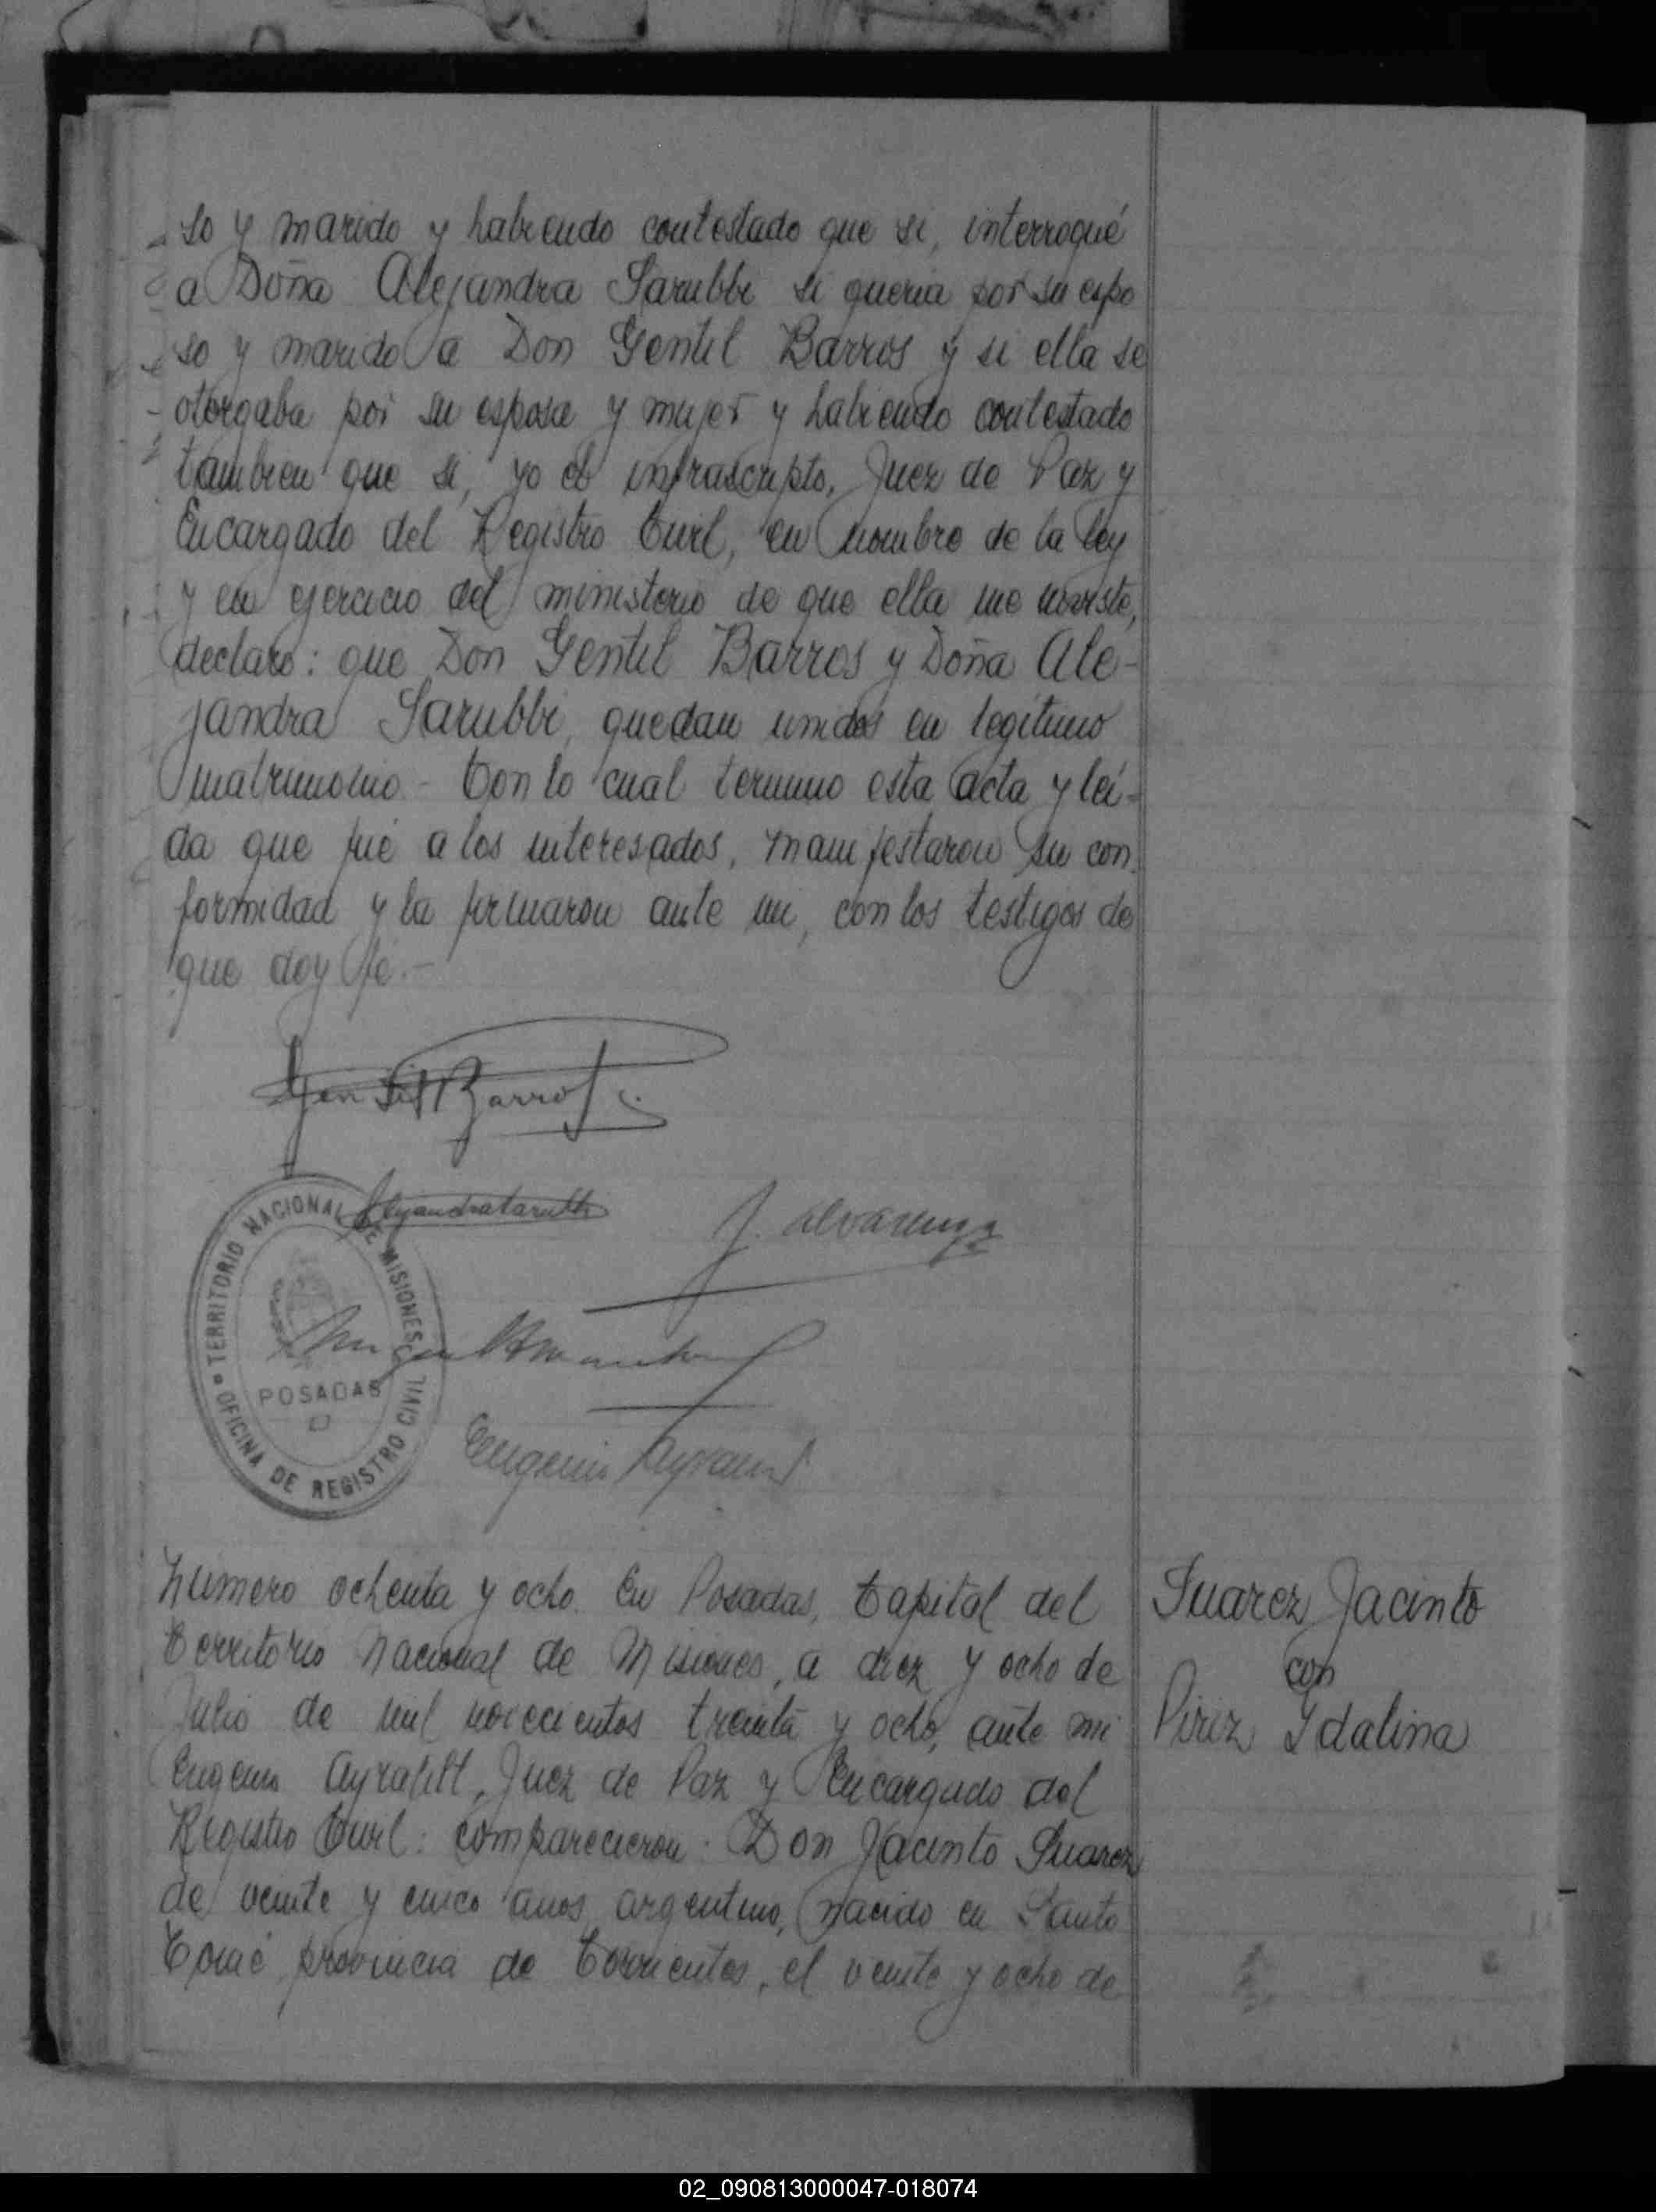 so y marido y habiendo contestado que si, interrogué
a Doña Alejandra Sarubbi si queria por su espo
so y marido a Don Gentil Barros y si ella se
otorgaba por su esposa y mujer y habiendo contestado
tambien que si, yo el infrascripto, Juez de Paz y
Encargado del Registro Civil, en nombre de la ley
y en ejercicio del ministerio de que ella me inviste,
declaro: que Don Gentil Barros y Doña Ale-
jandra Sarubbi, quedan unidos en legítimo
matrimonio.- Con lo cual termino esta acta y leí-
da que fué a los interesados, manifestaron su con
formidad y la firmaron ante mi, con los testigos de
que doy fé.-
Gentil Barros
Alejandra Sarubbi
J. Alvarenga
TERRITORIO NACIONAL DE MISIONES
POSADAS
OFICINA DE REGISTRO CIVIL
Miguel
Eugenio Ayrault
Número ochenta y ocho. En Posadas, Capital del
Territorio Nacional de Misiones, a diez y ocho de
Julio de mil novecientos treinta y ocho, ante mi
Eugenio Ayrault, Juez de Paz y Encargado del
Registro Civil: comparecieron: Don Jacinto Suarez
de veinte y cinco años, argentino, nacido en Santo
Tomé provincia de Corrientes, el veinte y ocho de
Suarez Jacinto
con
Piriz Idalina
02_090813000047-018074